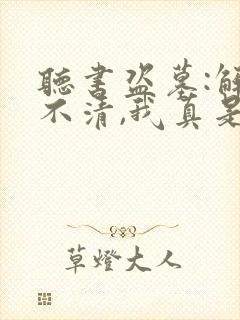 聽書盜墓:解
不清,我真是
草燈大人